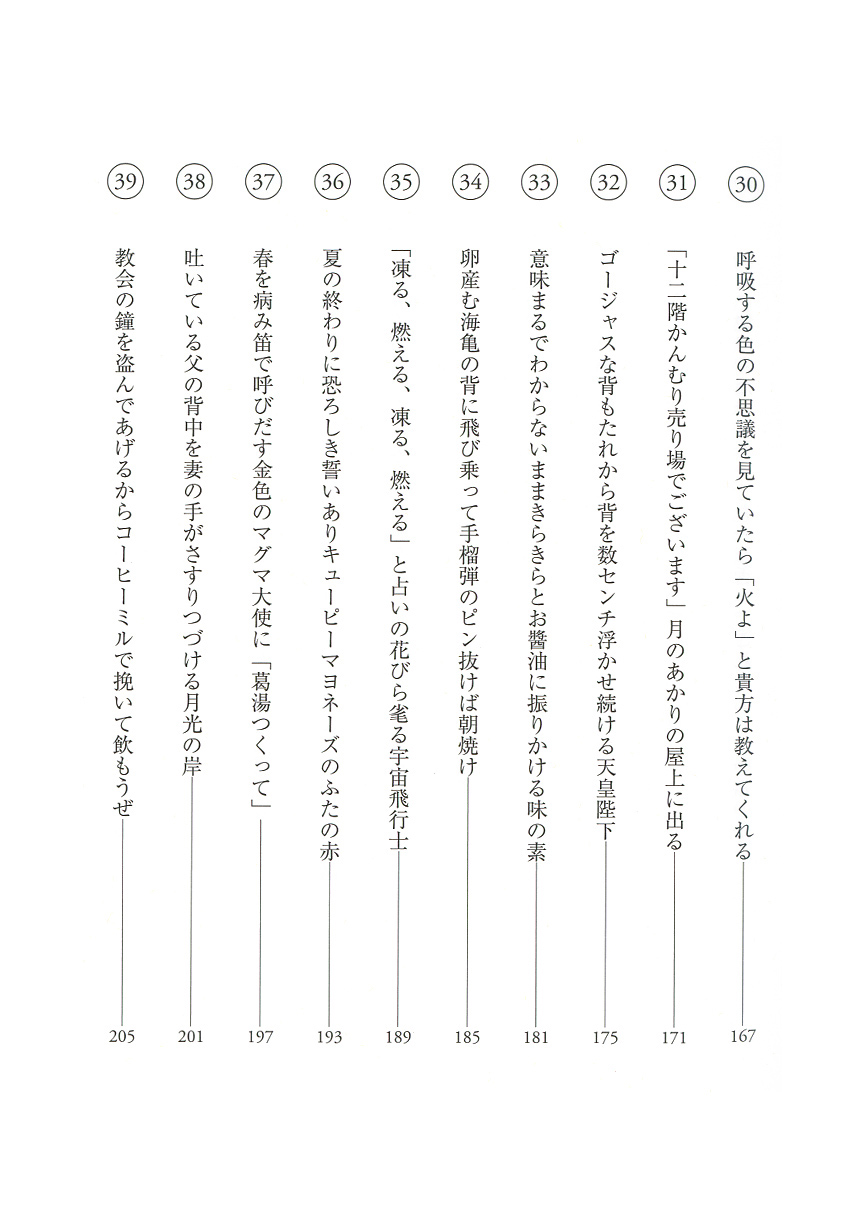 30 呼吸する色の不思議を見ていたら「火よ」と貴方は教えてくれる 167
31 「十二階かんむり売り場でございます」月のあかりの屋上に出る 171
32 ゴージャスな背もたれから背を数センチ浮かせ続ける天皇陛下 175
33 意味まるでわからないままきらきらとお醬油に振りかける味の素 181
34 卵産む海亀の背に飛び乗って手榴弾のピン抜けば朝焼け 185
35 「凍る、燃える、凍る、燃える」と占いの花びら毟る宇宙飛行士 189
36 夏の終わりに恐ろしき誓いありキューピーマヨネーズのふたの赤 193
37 春を病み笛で呼びだす金色のマグマ大使に「葛湯つくって」 197
38 吐いている父の背中を妻の手がさすりつづける月光の岸 201
39 教会の鐘を盗んであげるからコーヒーミルで挽いて飲もうぜ 205